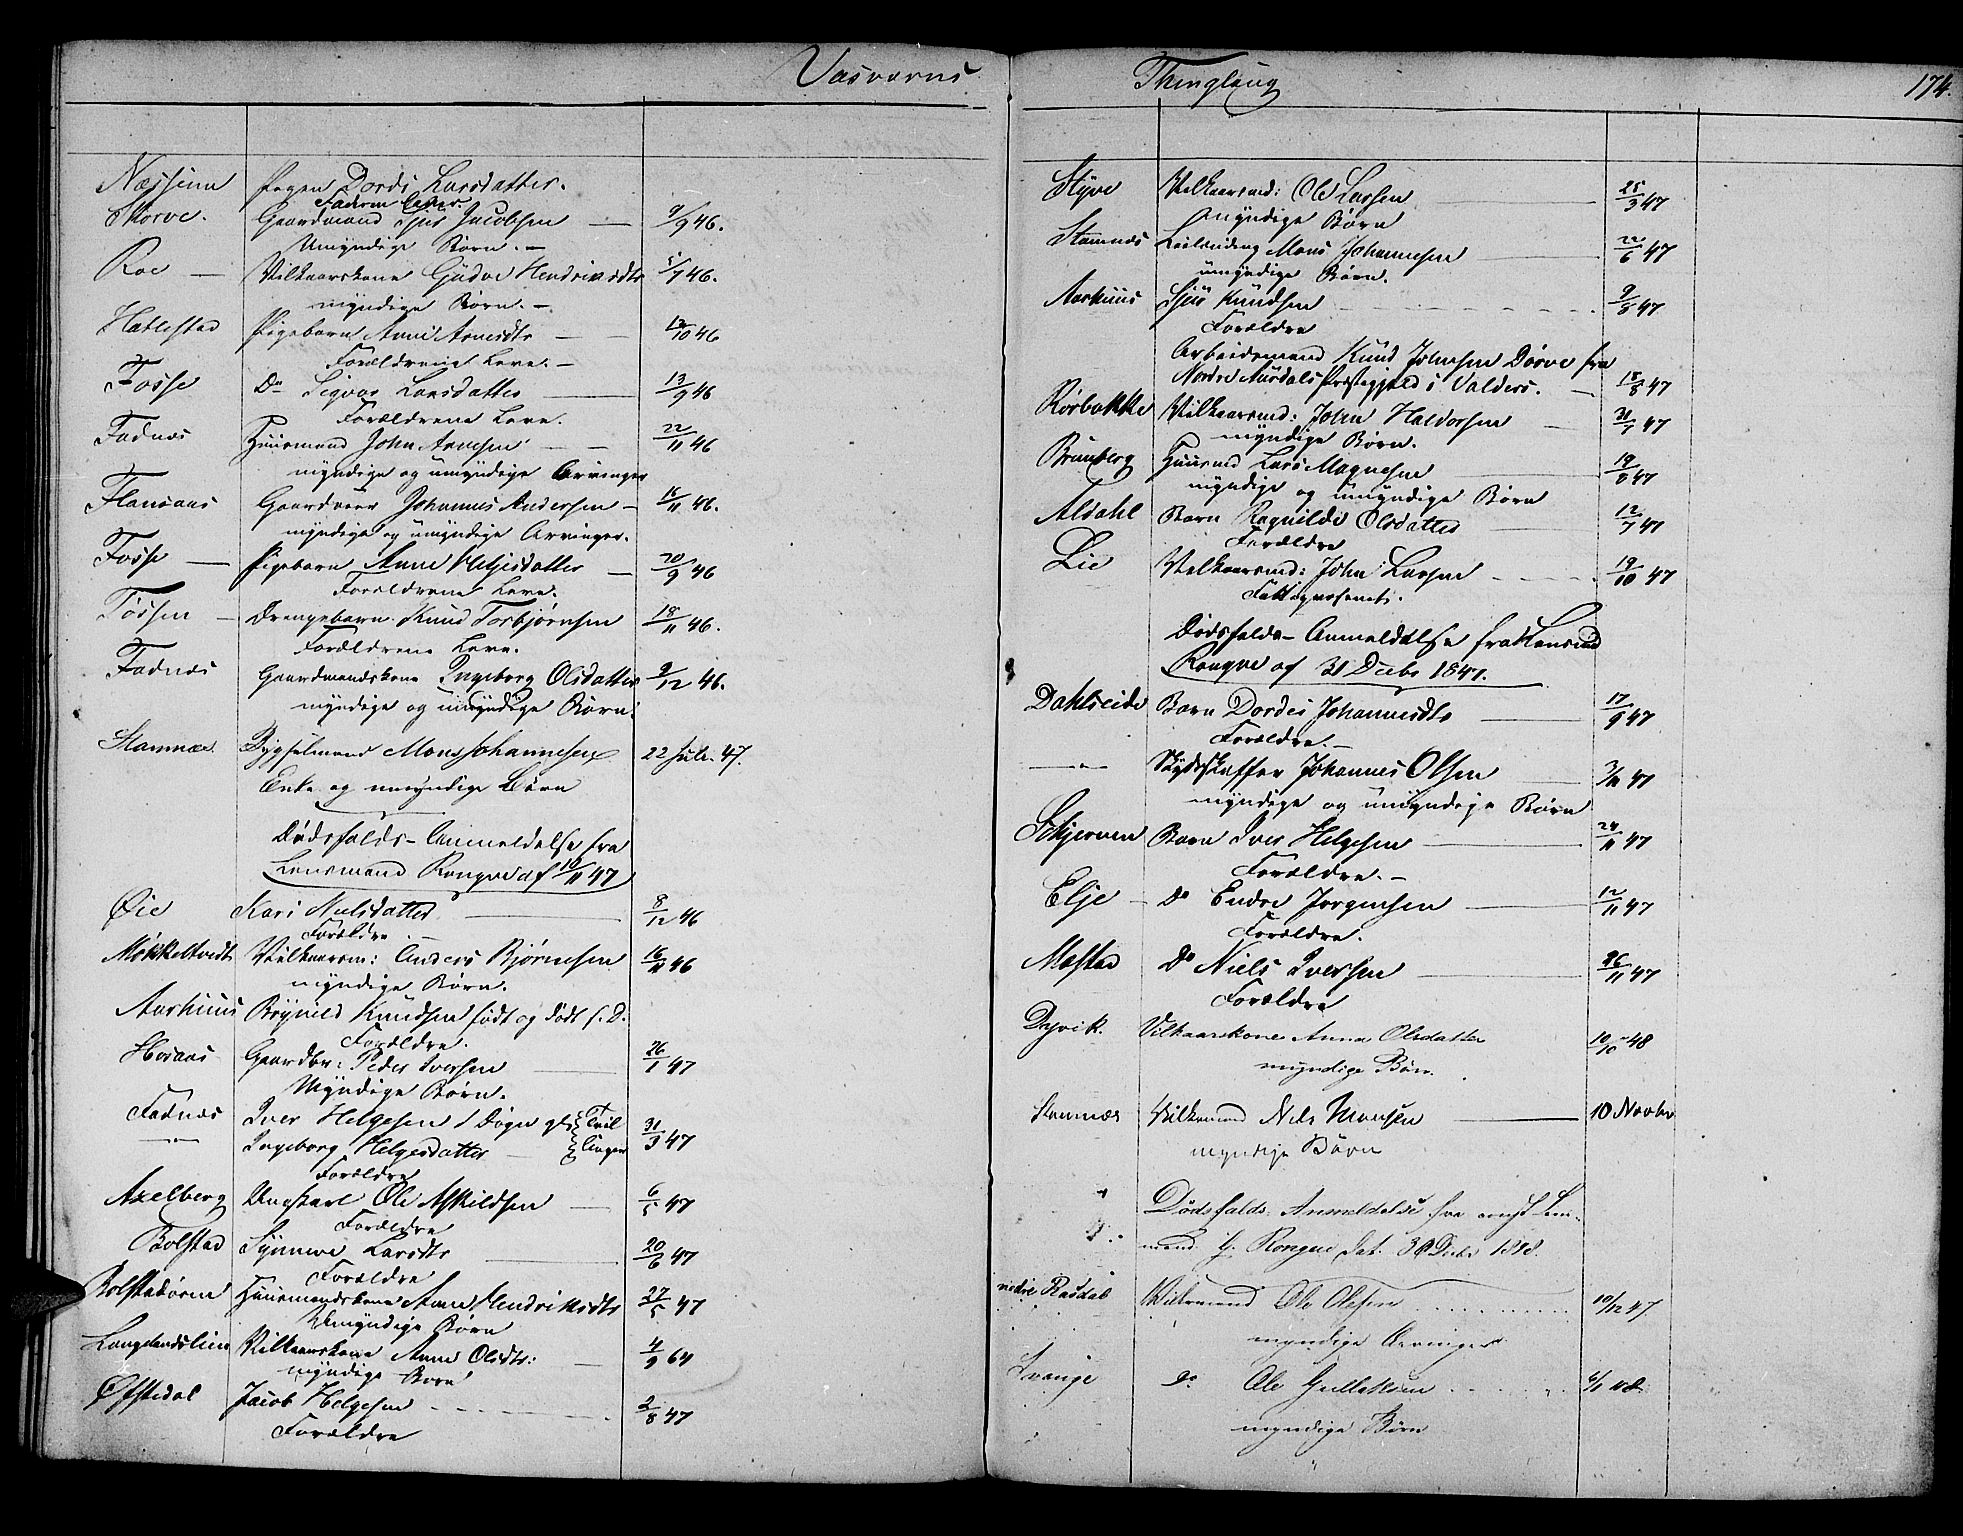 Vasvørns
Næssene Pogen Dordi Larsdatter.
Faderen lever
Skorve. Gaardmand Sjur Jacobsen — 9/9 46.
Umyndige Børn. —
Roe — Vilkaarskone Gudve Hendriksdtr 5/7 46.
myndige Børn. —
Hatlestad Pigebarn Anne Arnesdtr — 12/10 46
Forældrene Leve. —
Fosse Do Sigvor Larsdatter 13/9 46
Forældrene Leve.
Fadnæs Huusmand John Arnesen 22/11 46
myndige og umyndige Arvinger
Flansaas Johannes Andersen — 16/11 46.
myndige og umyndige Arvinger.
Fosse — Pigebarn Anne Helgesdatter — 20/9 46
Forældrene Leve.
Tøssen — Drengebarn Knud Torbjørnsen 18/11 46.
Forældrene Leve.
Fadnæs Gaardmandskone Ingeborg Olsdatter 9/12 46.
myndige og umyndige Børn.
Stamnæs Bygselmand Mons Johannesen 22 Juli 47.
Enke og umyndige Børn
Dødsfalds-Anmeldelse fra
Lensmand Rongve af 10/11 47
Øie Kari Nielsdatter 8/12 46
Forældre —
Møkkeltvedt Vilkaarsm: Anders Bjørnesen 16/11 46
myndige Børn.
Aarhuus Brynild Knudsen født og død f. D.
Forældre.
Hesaas Gaardbr: Peder Iversen 26/1 47
Myndige Børn.
Fadnæs Iver Helgesen 1 Døgn gl. Tvil
—"— Ingeborg Helgesdatter — linger 31/3 47
Forældre
Axelberg Ungkarl Ole Askildsen — 6/5 47
Forældre
Bolstad Synneve Larsdtr 20/6 47
Forældre
Bolstadøren Huusmandskone Anne Hendriksdtr 27/5 47
Umyndige Børn
Langelandslien Vilkaarskone Anne Olsdtr: — 4/9 64
myndige Børn
Øfstedal Jacob Helgesen 2/8 47
Forældre
Thinglaug 174.
Styve Vilkaarsmd: Ole Larsen 25/3 47
myndige Børn
Stamnæs Leilending Mons Johannesen 22/6 47
umyndige Børn.
Aarhuus Sjur Knudsen 9/8 47
Forældre
Arbeidsmand Knud Johnsen Dørve fra
Nordre Aurdals Præstegjeld i Valders. — 18/8 47
Rørbakke Vilkaarsmd: John Haldorsen 31/7 47
myndige Børn.
Brunberg Huusmd Lars Magnesen 19/8 47
myndige og umyndige Børn
Aldahl Barn Ragnilde Olsdatter 12/7 47
Forældre
Lie Vilkaarsmd: John Larsen 19/10 47
Fattigvæsenet.
Dødsfalds-Anmeldelse fra Lensmd
Rongve af 31 Decbr 1847.
Dahlseide Barn Dordei Johannesdtr 17/9 47
Forældre. —
—"— Skydsskaffer Johannes Olsen 3/11 47
myndige og umyndige Børn
Schjerven Barn Iver Helgesen 24/11 47
Forældre. —
Elje — Do Endre Jørgensen 12/11 47
Forældre.
Mostad Do Niels Iversen 26/11 47
Forældre
Dyvik. Vilkaarskone Anna Olsdatter 10/10 48
myndige Børn.
Stamnæs Vilkmand Nils Monsen 10 Novbr
myndige Børn
Dødsfalds-Anmeldelse fra const. Lens-
mand H. Rongve dat. 30 Decbr 1848.
nedre Rasdal Vilkmand Ole Olsen 10/12 47
myndige Arvinger
Svange Do Ole Gulleksen 6/1 48
myndige Børn